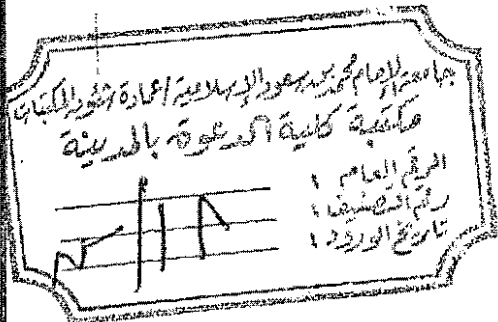 جامعة الإمام محمد بن سعود الإسلامية / عمادة شؤون المكتبات
مكتبة كلية الدعوة بالمدينة
الرقم العام :
رقم التصنيف :
تاريخ الورود :